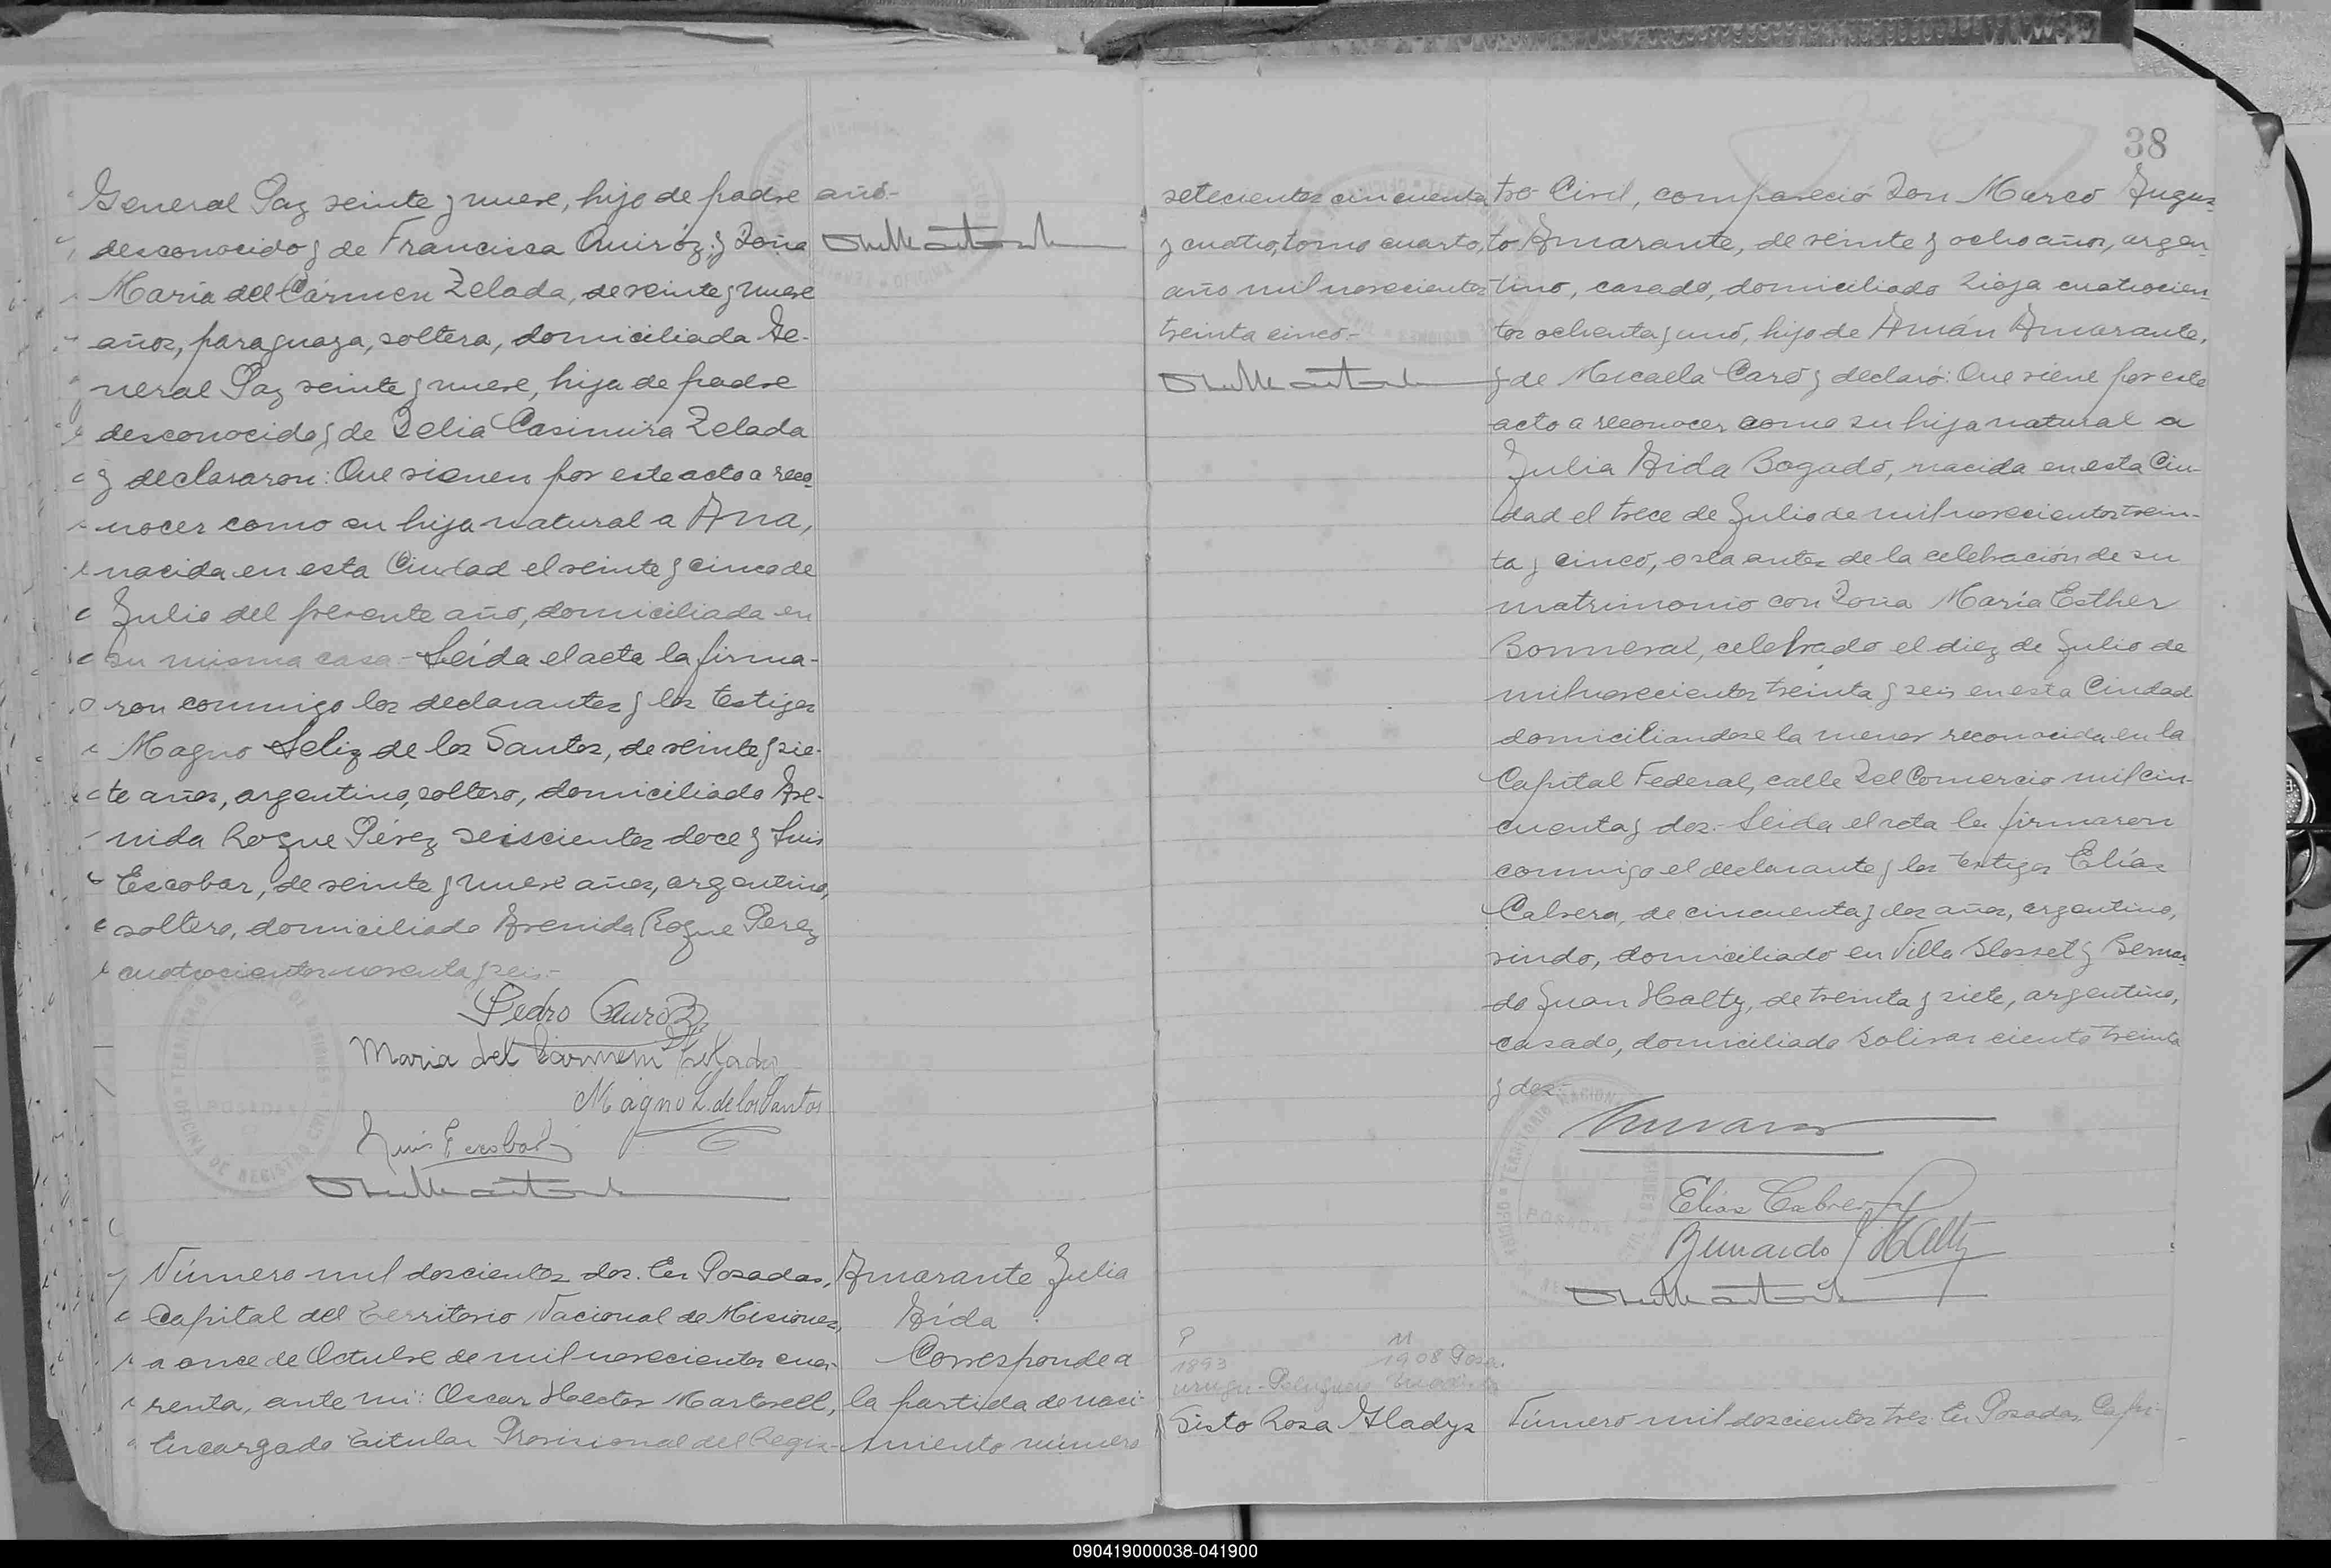 General Paz veinte y nueve, hijo de padre
desconocido y de Francisca Quiróz; y Doña
María del Cármen Zelada, de veinte y nueve
años, paraguaya, soltera, domiciliada Ge-
neral Paz veinte y nueve, hija de padre
desconocido y de Delia Casimira Zelada
y declararon: Que vienen por este acto a reco-
nocer como su hija natural a Ana,
nacida en esta Ciudad el veinte y cinco de
Julio del presente año, domiciliada en
su misma casa.- Leída el acta la firma-
ron conmigo los declarantes y los testigos
Magno Feliz de los Santos, de veinte y sie-
te años, argentino, soltero, domiciliado Ave-
nida Roque Pérez seiscientos doce y Luis
Escobar, de veinte y nueve años, argentino,
soltero, domiciliado Avenida Roque Perez
cuatrocientos noventa y seis.-
Pedro Quiroz
Maria del Carmen Zelada
Magno L. de los Santos
Luis Escobar
OFICINA DE REGISTRO CIVIL
POSADAS
Número mil doscientos dos. En Posadas,
Capital del Territorio Nacional de Misiones,
a once de Octubre de mil novecientos cua-
renta, ante mi: Oscar Hector Martorell,
Encargado Titular Provisional del Regis-
año.-
Amarante Julia
Aída
Corresponde a
la partida de naci-
miento número
38
setecientos cincuenta
y cuatro, tomo cuarto,
año mil novecientos
treinta cinco.-
tro Civil, compareció Don Marco Augus-
to Amarante, de veinte y ocho años, argen-
tino, casado, domiciliado Rioja cuatrocien-
tos ochenta y uno, hijo de Amán Amarante,
y de Micaela Caro y declaró: Que viene por este
acto a reconocer como su hija natural a
Julia Aida Bogado, nacida en esta Ciu-
dad el trece de Julio de mil novecientos trein-
ta y cinco, o sea antes de la celebración de su
matrimonio con Doña María Esther
Bonneval, celebrado el diez de Julio de
mil novecientos treinta y seis en esta Ciudad
domiciliandose la menor reconocida en la
Capital Federal, calle Del Comercio mil cin-
cuenta y dos.- Leida el acta la firmaron
conmigo el declarante y los testigos Elías
Cabrera, de cincuenta y dos años, argentino,
viudo, domiciliado en Villa Blosset y Bernar-
do Juan Halty, de treinta y siete, argentino,
casado, domiciliado Bolivar ciento treinta
y dos.-
Elias Cabrera
Bernardo J Halty
POSADAS
P
M
1893
1908 Posa.
Sisto Rosa Gladys
Número mil doscientos tres. En Posadas, Capi-
090419000038-041900